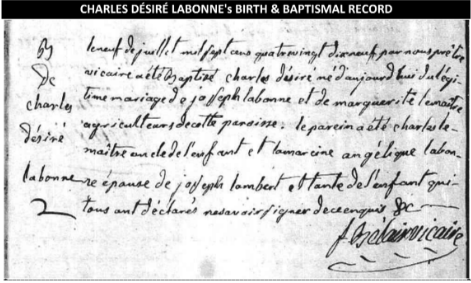 CHARLES DÉSIRÉ LABONNE's BIRTH & BAPTISMAL RECORD
le neuf de juillet mil sept cens quatre vingt dix neuf par nous prêtre
vicaire a été Baptizé charles désiré né d'aujourd'hui du légi
time mariage de josseph labonne et de marguerite lemaitre
agriculteurs de cette paroisse; le parein a été charles le-
maitre oncle de l'enfant et la mareine angélique labon-
ne épouse de josseph lambert et tante de l'enfant qui
tous ont déclarés ne savoir signer de ce enquis &c
vicaire
B
de
charles
désiré
labonne
2